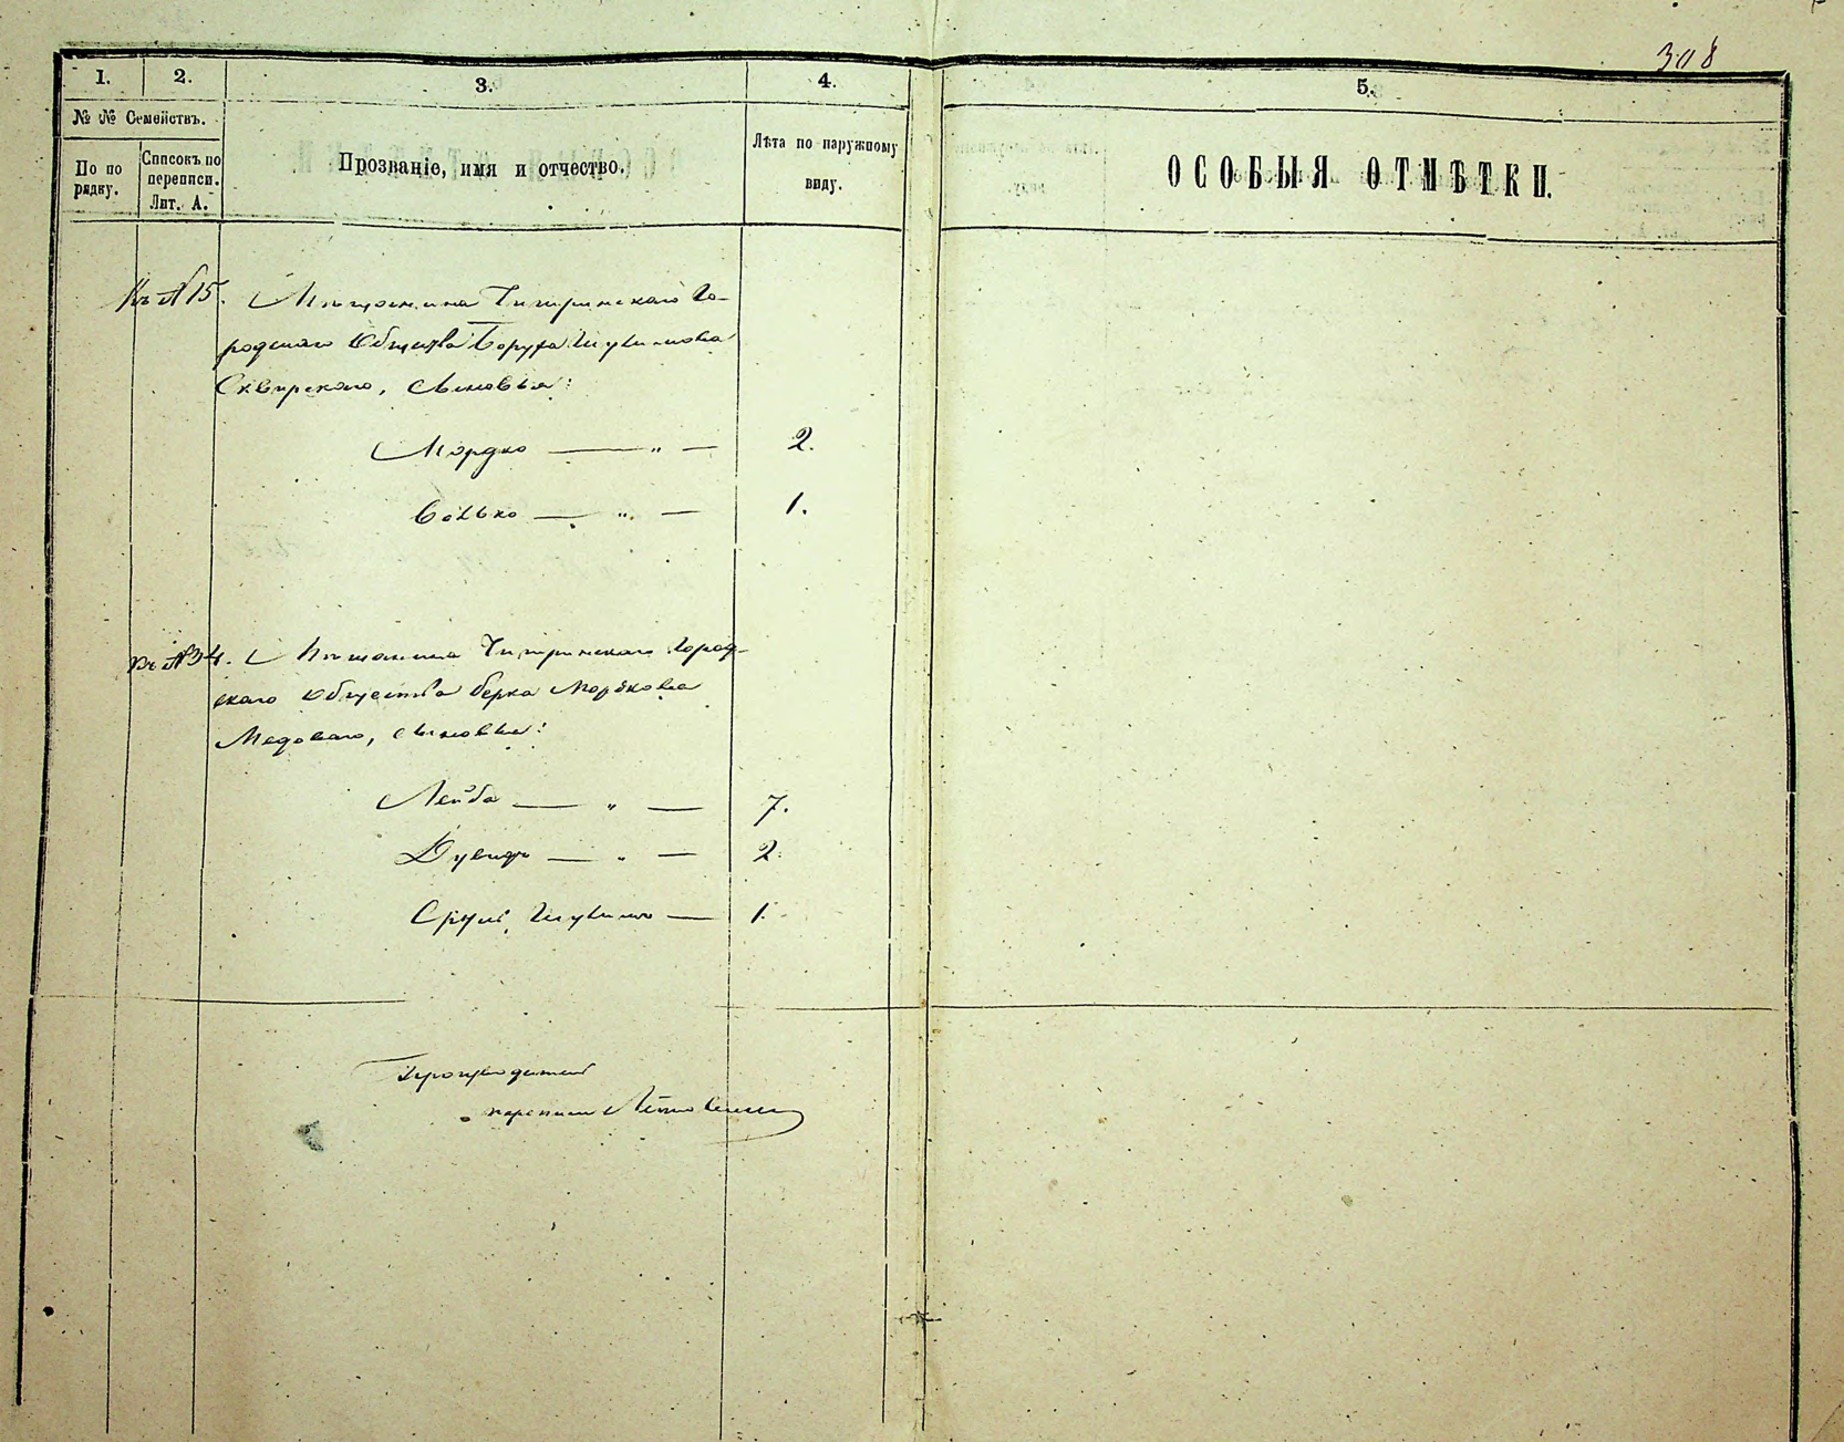 308
1. 2. 3. 4. 5.
№ № Семействъ.
По по рядку.
Списокъ по переписи. Лит. А.
Прозваніе, имя и отчество.
Лѣта по наружному виду.
ОСОБЫЯ ОТМѢТКИ.
Къ № 15. Мѣщанина Го-
родскаго Общества Боруха
Сквирскаго, сыновья:
Мордко — " — 2.
Волько — " — 1.
Къ № 34. Мѣщанина Город-
скаго Общества Берка Мордкова
Медоваго, сыновья:
Лейба — " — 7.
Дувидъ — " — 2.
Сруль — 1.
Производитель
переписи